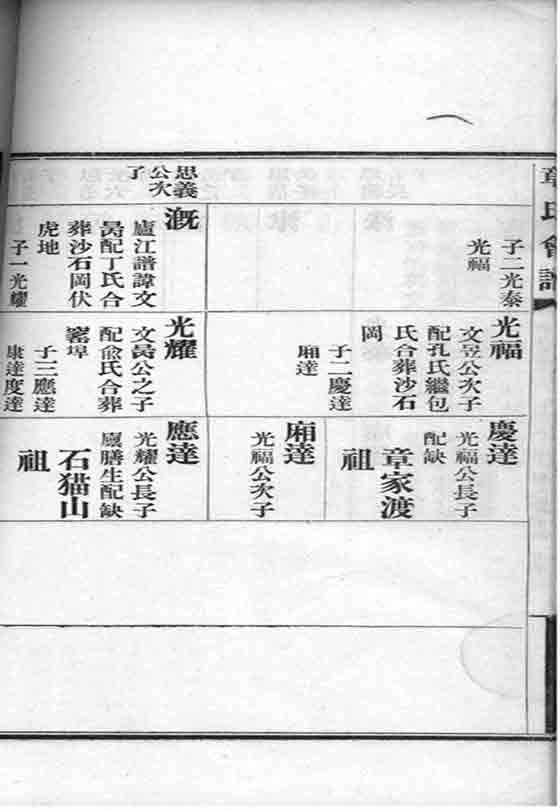 章氏會譜
子二光泰
光福
思義
公次
子
溉
廬江譜諱文
昺配丁氏合
葬沙石岡伏
虎地
子一光耀
光福
文昱公次子
配孔氏繼包
氏合葬沙石
岡
子二慶達
廂達
光耀
文昺公之子
配兪氏合葬
窰埠
子三應達
康達度達
慶達
光福公長子
配缺
章家渡
祖
廂達
光福公次子
應達
光耀公長子
廩膳生配缺
石猫山
祖